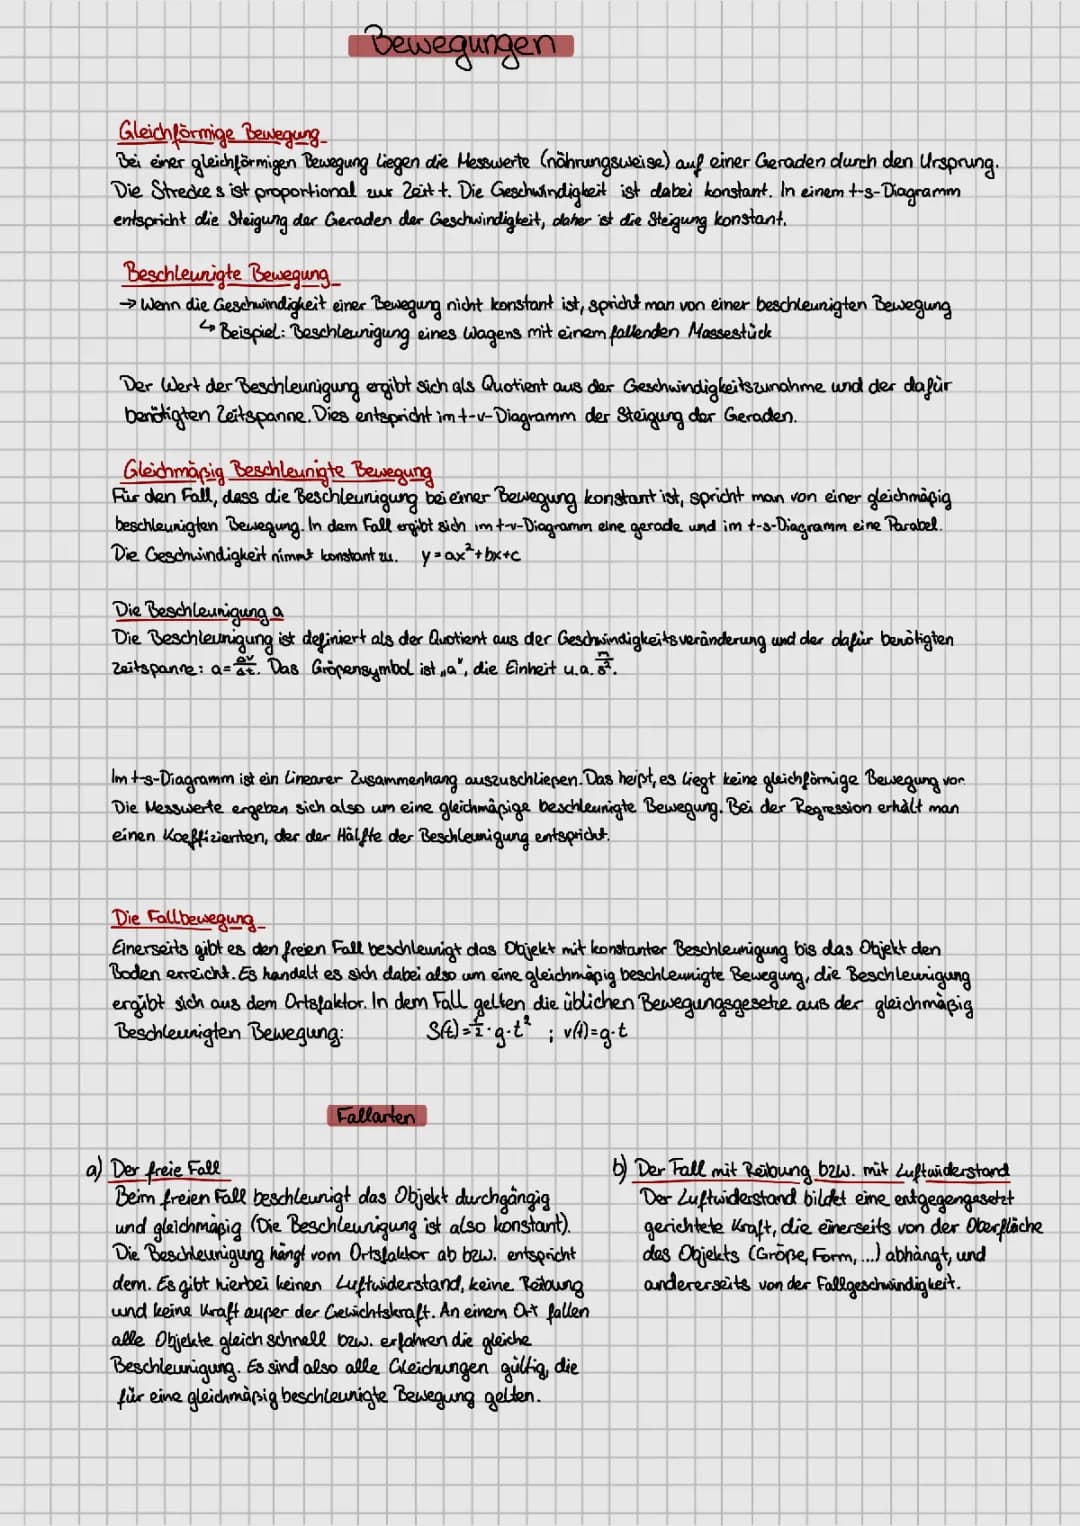 Bewegungen
Gleichförmige Bewegung
Bei einer gleichförmigen Bewegung liegen die Messwerte (nährungsweise) auf einer Geraden durch den Ursprung.
Die Strecke s ist proportional zur Zeit t. Die Geschwindigkeit ist dabei konstant. In einem t-s-Diagramm
entspricht die Steigung der Geraden der Geschwindigkeit, daher ist die Steigung konstant.
Beschleunigte Bewegung
→ Wenn die Geschwindigkeit einer Bewegung nicht konstant ist, spricht man von einer beschleunigten Bewegung
↳ Beispiel: Beschleunigung eines Wagens mit einem fallenden Massestück
Der Wert der Beschleunigung ergibt sich als Quotient aus der Geschwindigkeitszunahme und der dafür
benötigten Zeitspanne. Dies entspricht im t-v-Diagramm der Steigung der Geraden.
Gleichmäßig Beschleunigte Bewegung
Für den Fall, dass die Beschleunigung bei einer Bewegung konstant ist, spricht man von einer gleichmäßig
beschleunigten Bewegung. In dem Fall ergibt sich im t-v-Diagramm eine gerade und im t-s-Diagramm eine Parabel.
Die Geschwindigkeit nimmt konstant zu. y=ax²+bx+c
Die Beschleunigung a
Die Beschleunigung ist definiert als der Quotient aus der Geschwindigkeitsveränderung und der dafür benötigten
Zeitspanne: a=Δv/Δt. Das Größensymbol ist „a", die Einheit u.a. m/s².
Im t-s-Diagramm ist ein linearer Zusammenhang auszuschließen. Das heißt, es liegt keine gleichförmige Bewegung vor.
Die Messwerte ergeben sich also um eine gleichmäßige beschleunigte Bewegung. Bei der Regression erhält man
einen Koeffizienten, der der Hälfte der Beschleunigung entspricht.
Die Fallbewegung
Einerseits gibt es den freien Fall beschleunigt das Objekt mit konstanter Beschleunigung bis das Objekt den
Boden erreicht. Es handelt es sich dabei also um eine gleichmäßig beschleunigte Bewegung, die Beschleunigung
ergibt sich aus dem Ortsfaktor. In dem Fall gelten die üblichen Bewegungsgesetze aus der gleichmäßig
Beschleunigten Bewegung: S(t)=½·g·t² ; v(t)=g·t
Fallarten
a) Der freie Fall
Beim freien Fall beschleunigt das Objekt durchgängig
und gleichmäßig (Die Beschleunigung ist also konstant).
Die Beschleunigung hängt vom Ortsfaktor ab bzw. entspricht
dem. Es gibt hierbei keinen Luftwiderstand, keine Reibung
und keine Kraft außer der Gewichtskraft. An einem Ort fallen
alle Objekte gleich schnell bzw. erfahren die gleiche
Beschleunigung. Es sind also alle Gleichungen gültig, die
für eine gleichmäßig beschleunigte Bewegung gelten.
b) Der Fall mit Reibung bzw. mit Luftwiderstand
Der Luftwiderstand bildet eine entgegengesetzt
gerichtete Kraft, die einerseits von der Oberfläche
des Objekts (Größe, Form, ...) abhängt, und
andererseits von der Fallgeschwindigkeit.